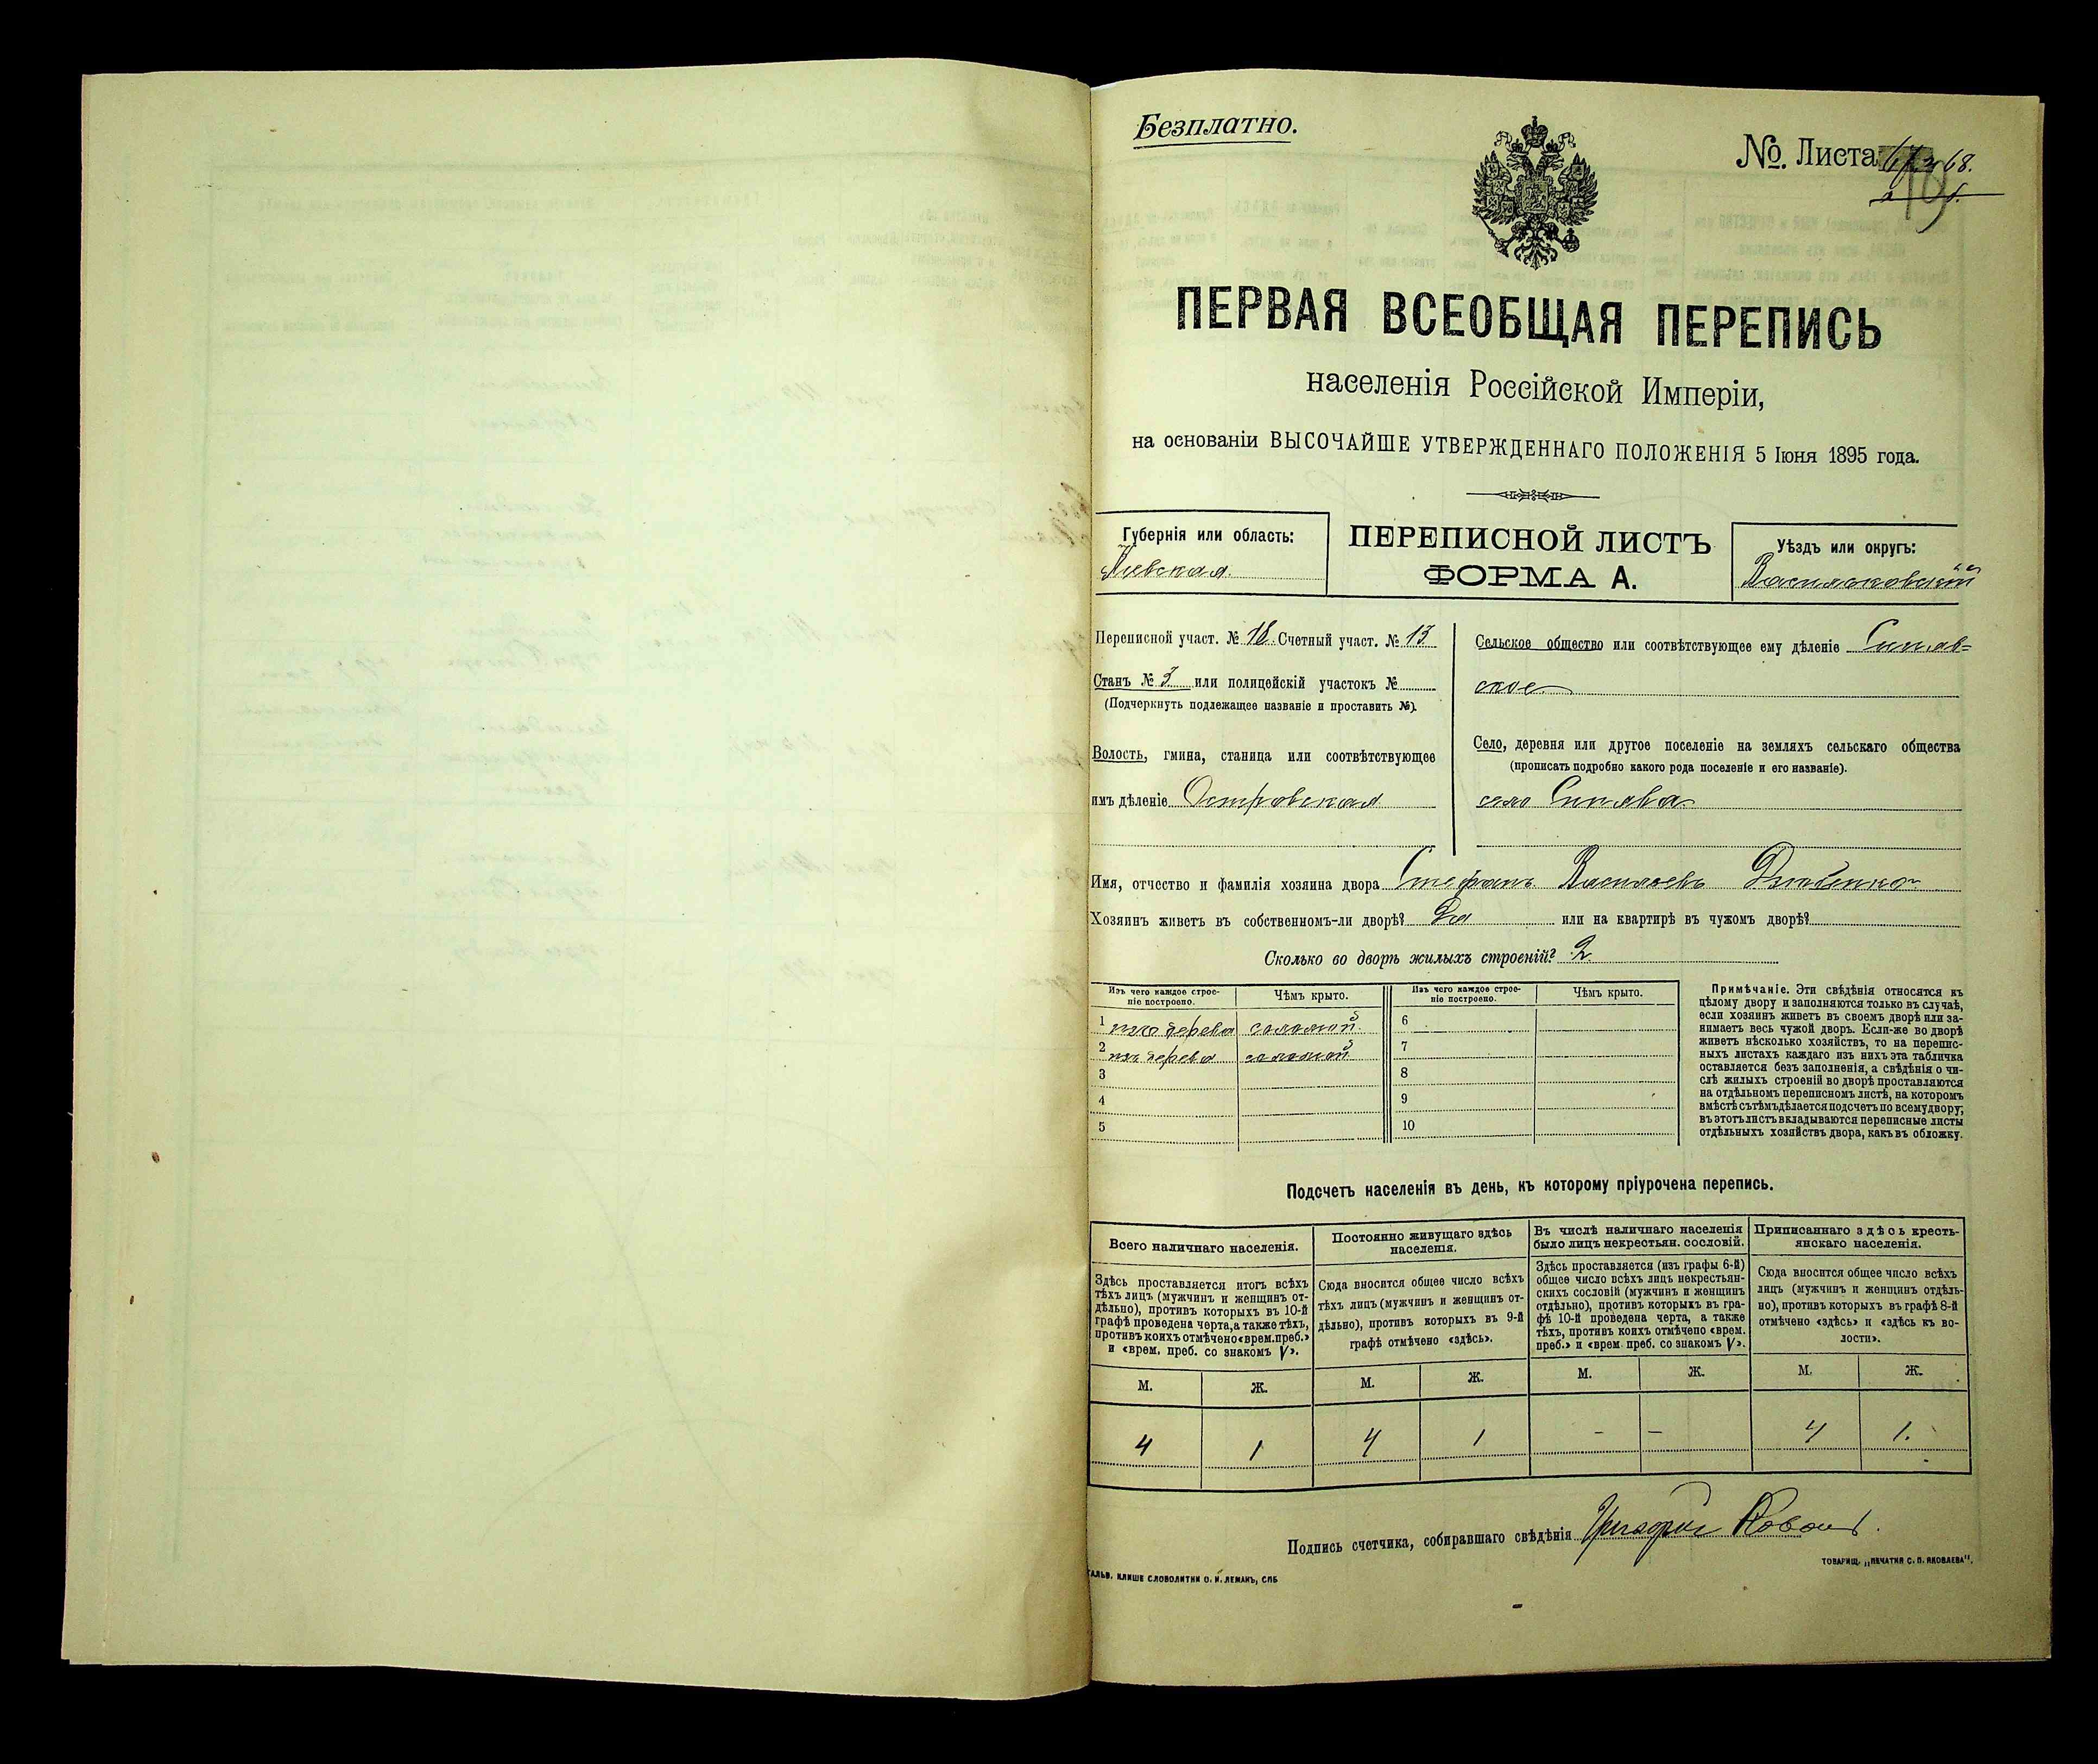 Безплатно.
№. Листа 68.
ПЕРВАЯ ВСЕОБЩАЯ ПЕРЕПИСЬ
населенія Россійской Имперіи,
на основаніи ВЫСОЧАЙШЕ УТВЕРЖДЕННАГО ПОЛОЖЕНІЯ 5 Іюня 1895 года.
Губернія или область:
Кіевская.
ПЕРЕПИСНОЙ ЛИСТЪ
ФОРМА А.
Уѣздъ или округъ:
Васильковскій
Переписной участ. № 18. Счетный участ. № 13
Станъ № 3 или полицейскій участокъ №
(Подчеркнуть подлежащее названіе и проставить №).
Волость, гмина, станица или соотвѣтствующее
имъ дѣленіе Островская
Сельское общество или соотвѣтствующее ему дѣленіе Синяв=
ское
Село, деревня или другое поселеніе на земляхъ сельскаго общества
(прописать подробно какого рода поселеніе и его названіе).
село Синява
Имя, отчество и фамилія хозяина двора Стефанъ Васильевъ
Хозяинъ живетъ въ собственномъ-ли дворѣ? Да или на квартирѣ въ чужомъ дворѣ?
Сколько во дворѣ жилыхъ строеній? 2
Изъ чего каждое строе-
ніе построено.
Чѣмъ крыто.
1 изъ дерева соломой.
2 изъ дерева соломой
3
4
5
Изъ чего каждое строе-
ніе построено.
Чѣмъ крыто.
6
7
8
9
10
Примѣчаніе. Эти свѣдѣнія относятся къ
цѣлому двору и заполняются только въ случаѣ,
если хозяинъ живетъ въ своемъ дворѣ или за-
нимаетъ весь чужой дворъ. Если-же во дворѣ
живетъ нѣсколько хозяйствъ, то на перепис-
ныхъ листахъ каждаго изъ нихъ эта табличка
оставляется безъ заполненія, а свѣдѣнія о чи-
слѣ жилыхъ строеній во дворѣ проставляются
на отдѣльномъ переписномъ листѣ, на которомъ
вмѣстѣ съ тѣмъ дѣлается подсчетъ по всему двору;
въ этотъ листъ вкладываются переписные листы
отдѣльныхъ хозяйствъ двора, какъ въ обложку.
Подсчетъ населенія въ день, къ которому пріурочена перепись.
Всего наличнаго населенія.
Здѣсь проставляется итогъ всѣхъ
тѣхъ лицъ (мужчинъ и женщинъ от-
дѣльно), противъ которыхъ въ 10-й
графѣ проведена черта, а также тѣхъ,
противъ коихъ отмѣчено «врем. преб.»
и «врем. преб. со знакомъ V».
М. Ж.
4 1
Постоянно живущаго здѣсь
населенія.
Сюда вносится общее число всѣхъ
тѣхъ лицъ (мужчинъ и женщинъ от-
дѣльно), противъ которыхъ въ 9-й
графѣ отмѣчено «здѣсь».
М. Ж.
4 1
Въ числѣ наличнаго населенія
было лицъ некрестьян. сословій.
Здѣсь проставляется (изъ графы 6-й)
общее число всѣхъ лицъ некрестьян-
скихъ сословій (мужчинъ и женщинъ
отдѣльно), противъ которыхъ въ гра-
фѣ 10-й проведена черта, а также
тѣхъ, противъ коихъ отмѣчено «врем.
преб.» и «врем. преб. со знакомъ V».
М. Ж.
– –
Приписаннаго здѣсь кресть-
янскаго населенія.
Сюда вносится общее число всѣхъ
лицъ (мужчинъ и женщинъ отдѣль-
но), противъ которыхъ въ графѣ 8-й
отмѣчено «здѣсь» и «здѣсь къ во-
лости».
М. Ж.
4 1.
Подпись счетчика, собиравшаго свѣдѣнія Григорій
ГАЛЬВ. КЛИШЕ СЛОВОЛИТНИ О. И. ЛЕМАНЪ, СПБ
ТОВАРИЩ. „ПЕЧАТНЯ С. П. ЯКОВЛЕВА".